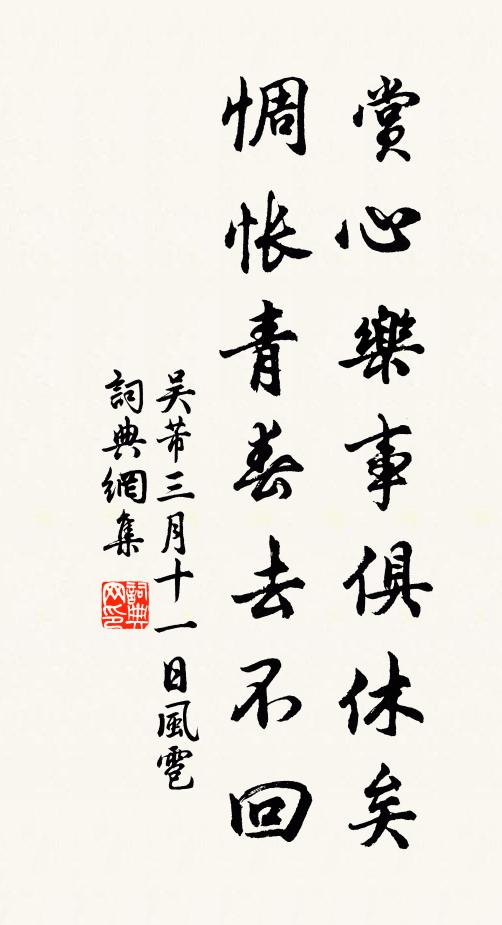 賞心樂事俱休矣
惆悵青春去不回
吴芾三月十一日風雹
詞典網集
詞典网印